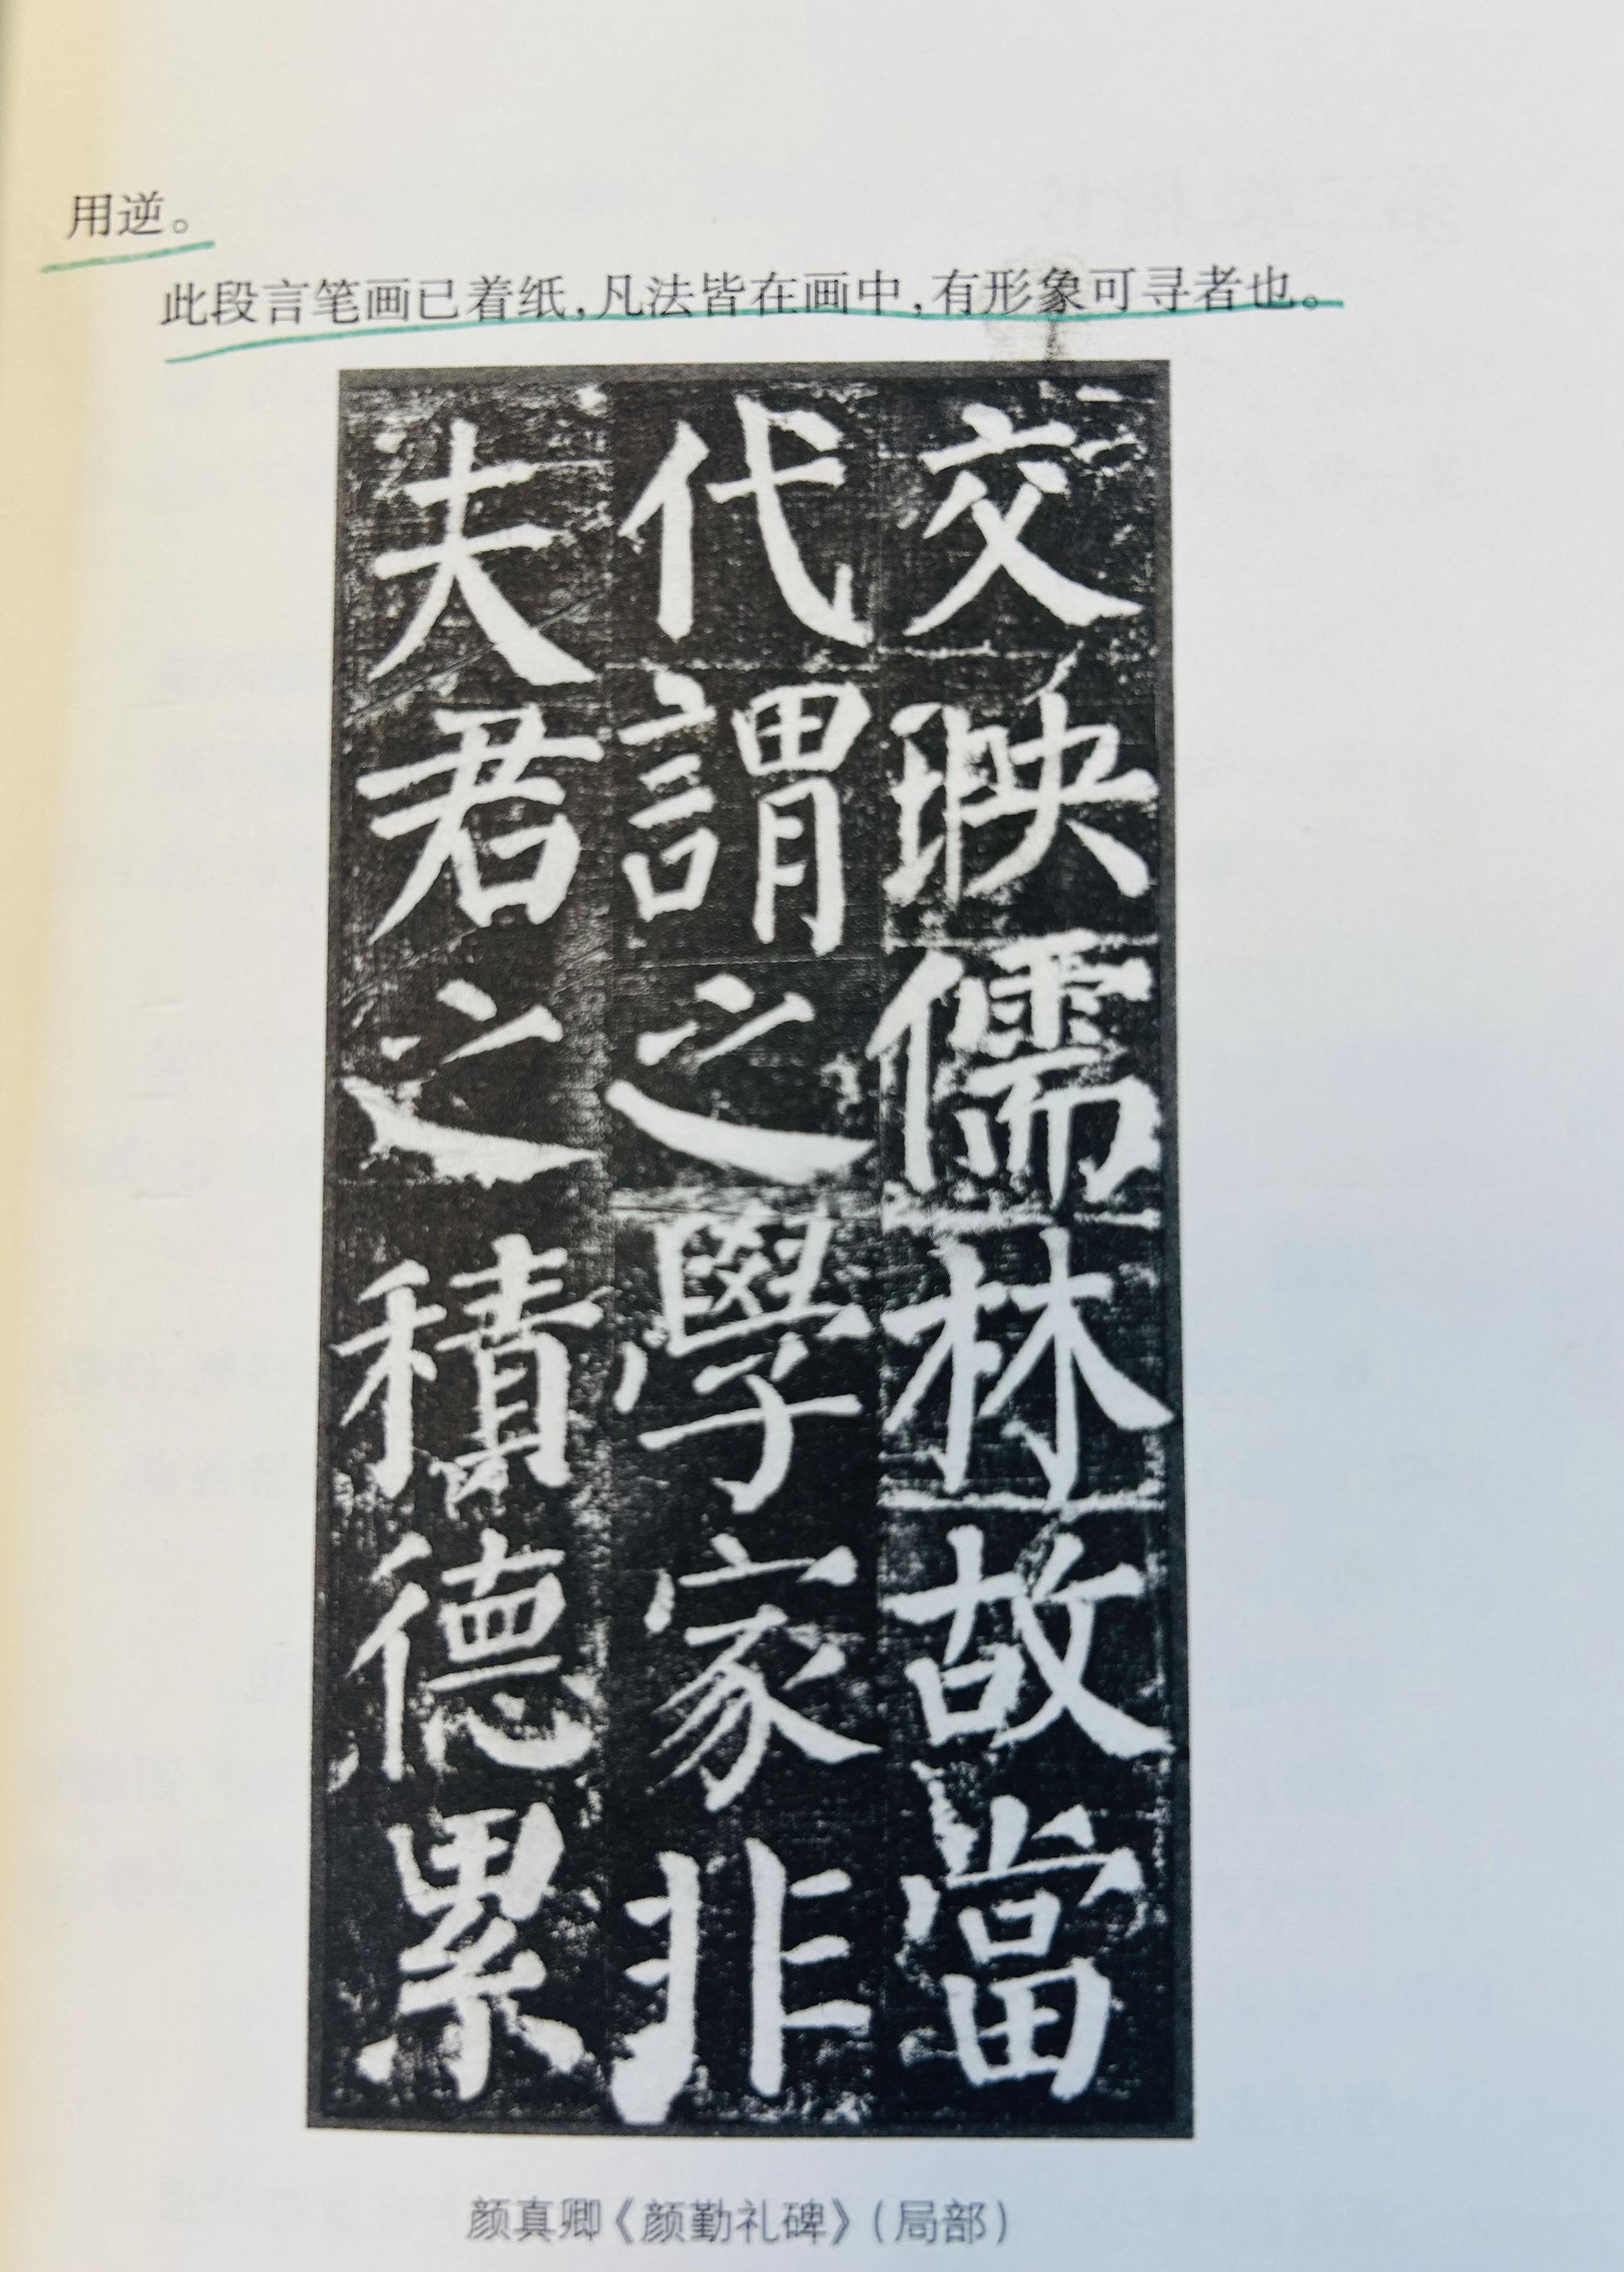 用逆。
此段言笔画已着纸,凡法皆在画中,有形象可寻者也。
交映儒林故當
代謂之學家非
夫君之積德累
颜真卿《颜勤礼碑》(局部)